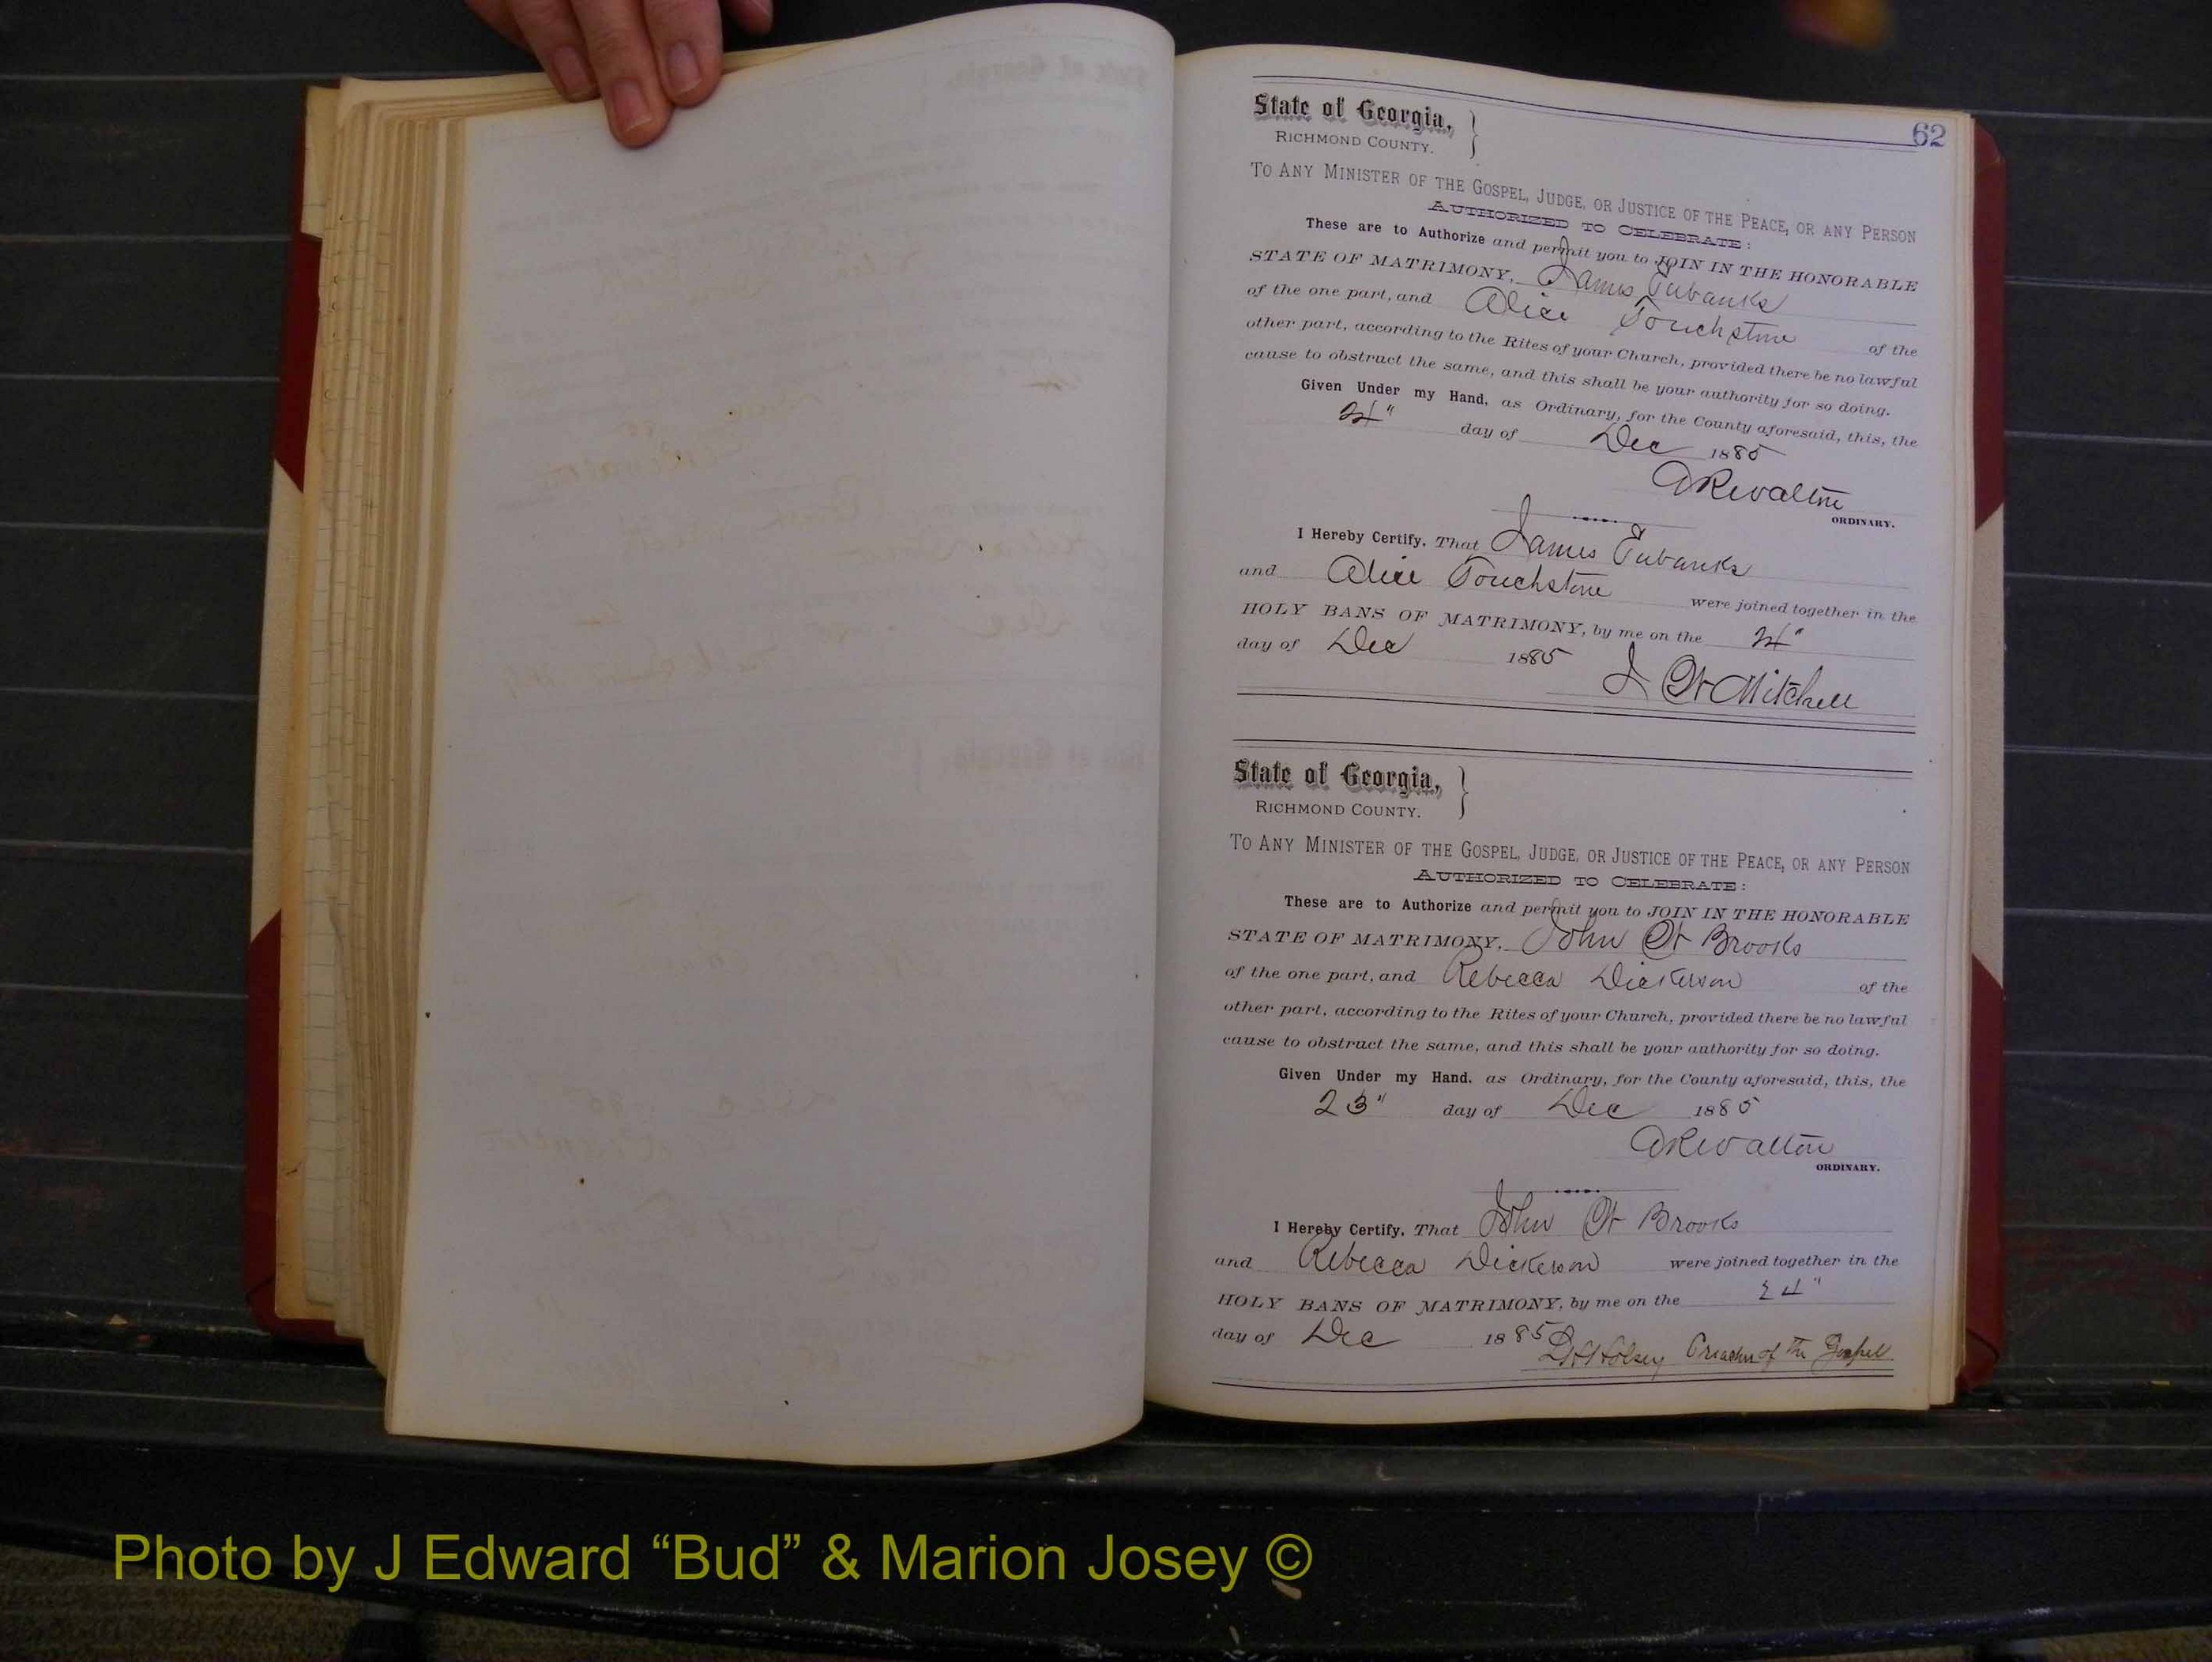 62
State of Georgia, }
RICHMOND COUNTY.
TO ANY MINISTER OF THE GOSPEL, JUDGE, OR JUSTICE OF THE PEACE, OR ANY PERSON
AUTHORIZED TO CELEBRATE:
These are to Authorize and permit you to JOIN IN THE HONORABLE
STATE OF MATRIMONY, James Eubanks
of the one part, and Alice Touchstone of the
other part, according to the Rites of your Church, provided there be no lawful
cause to obstruct the same, and this shall be your authority for so doing.
Given Under my Hand, as Ordinary, for the County aforesaid, this, the
24" day of Dec 1885
HRWalton
ORDINARY.
I Hereby Certify, That James Eubanks
and Alice Touchstone were joined together in the
HOLY BANS OF MATRIMONY, by me on the 24"
day of Dec 1885
Mitchell
State of Georgia, }
RICHMOND COUNTY.
TO ANY MINISTER OF THE GOSPEL, JUDGE, OR JUSTICE OF THE PEACE, OR ANY PERSON
AUTHORIZED TO CELEBRATE:
These are to Authorize and permit you to JOIN IN THE HONORABLE
STATE OF MATRIMONY, John H Brooks
of the one part, and Rebecca Dickerson of the
other part, according to the Rites of your Church, provided there be no lawful
cause to obstruct the same, and this shall be your authority for so doing.
Given Under my Hand, as Ordinary, for the County aforesaid, this, the
23" day of Dec 1885
HRWalton
ORDINARY.
I Hereby Certify, That John H Brooks
and Rebecca Dickerson were joined together in the
HOLY BANS OF MATRIMONY, by me on the 24"
day of Dec 1885
LH Holsey Preacher of the Gospel
Photo by J Edward “Bud” & Marion Josey ©